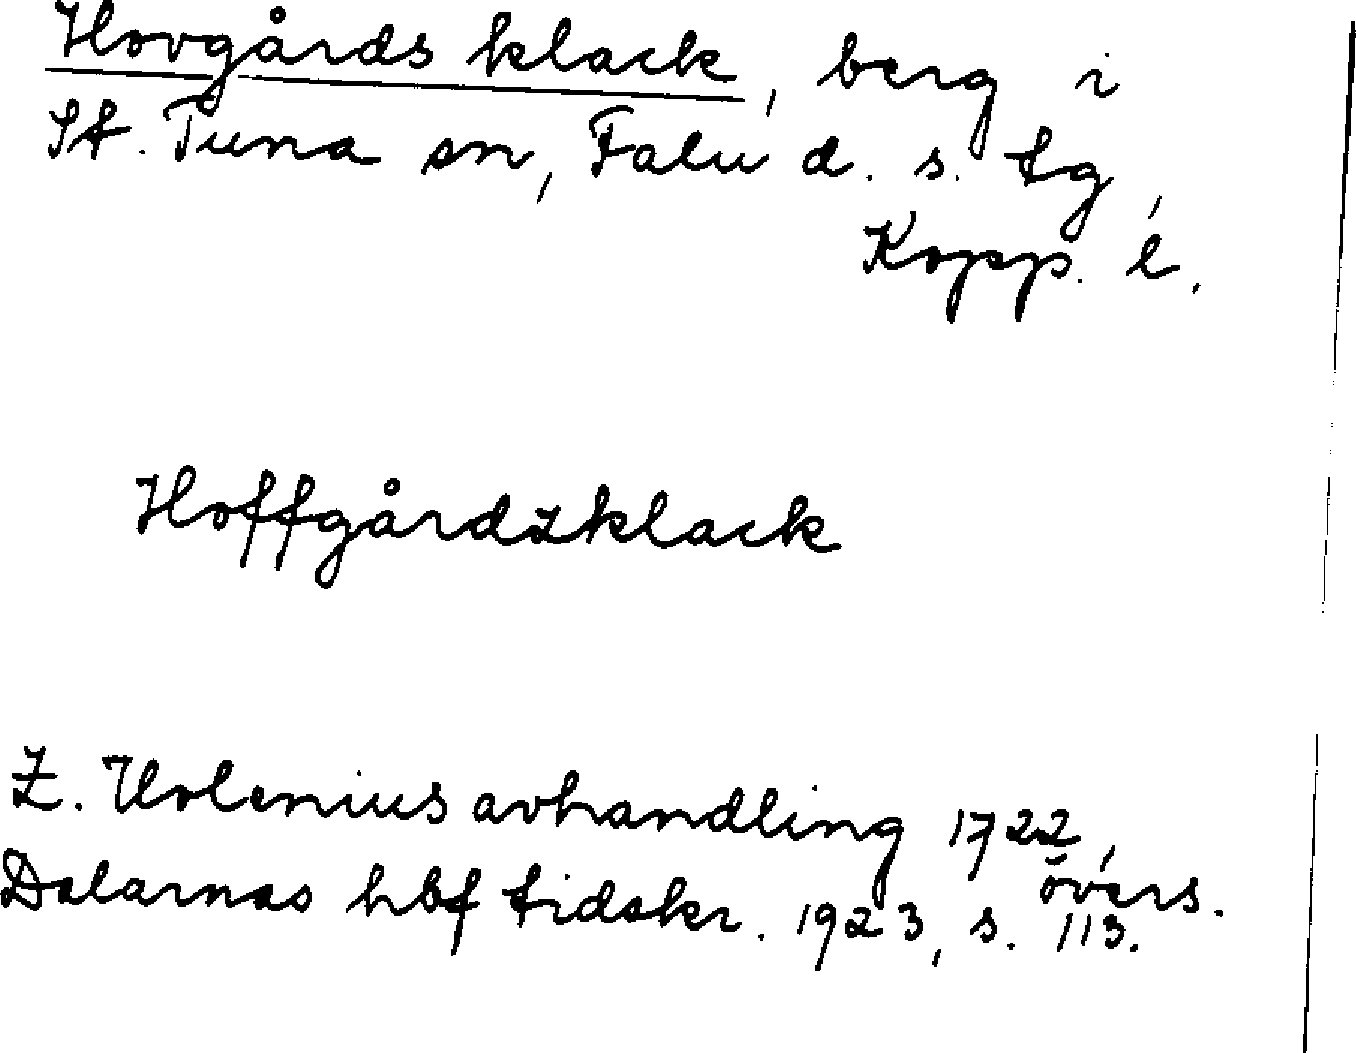 Hovgårds klack, berg i
St. Tuna sn, Falu d. s. tg,
Kopp. l.
Hoffgårdzklack
Z. Holenius avhandling 1722,
övers.
Dalarnas hbf tidskr. 1923, s. 113.